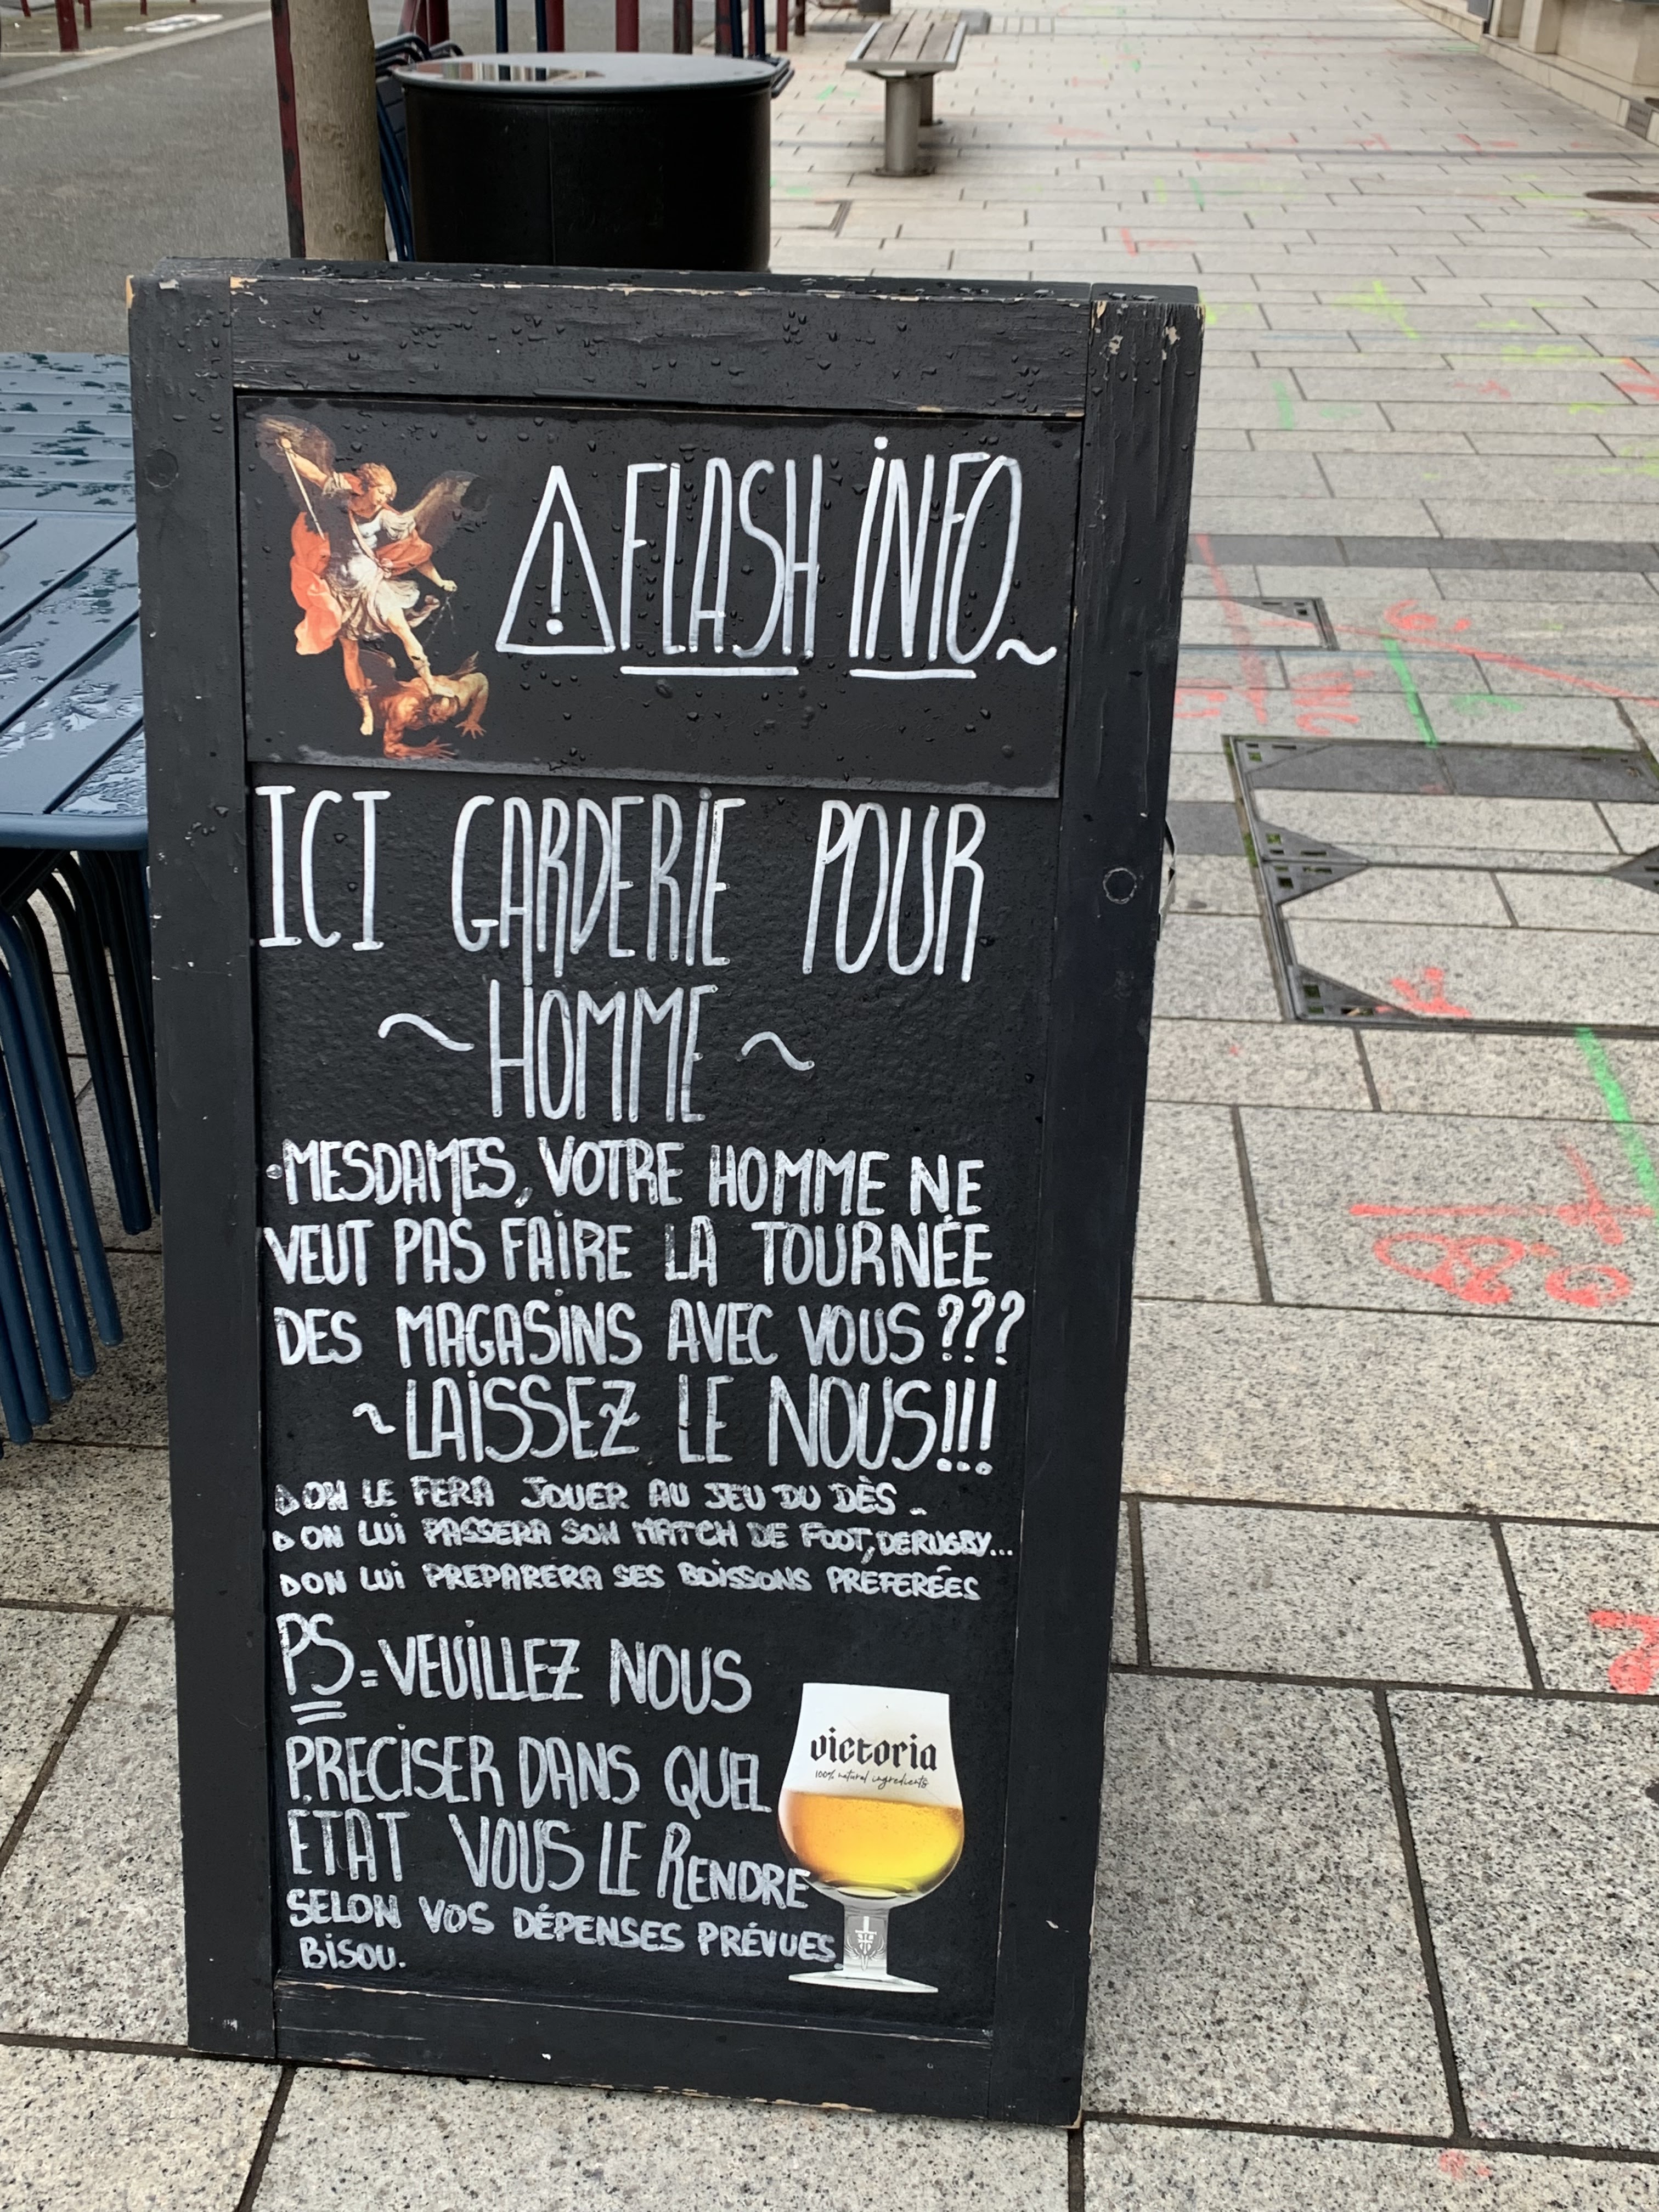 ⚠ FLASH INFO~
ICI GARDERIE POUR
~ HOMME ~
·MESDAMES, VOTRE HOMME NE
VEUT PAS FAIRE LA TOURNÉE
DES MAGASINS AVEC VOUS ???
~ LAISSEZ LE NOUS!!!
▷ ON LE FERA JOUER AU JEU DU DÈS.
▷ ON LUI PASSERA SON MATCH DE FOOT, DE RUGBY...
▷ ON LUI PREPARERA SES BOISSONS PREFERÉES
PS = VEUILLEZ NOUS
PRECISER DANS QUEL
ÉTAT VOUS LE RENDRE
SELON VOS DÉPENSES PRÉVUES.
BISOU.
victoria
100% natural ingredients